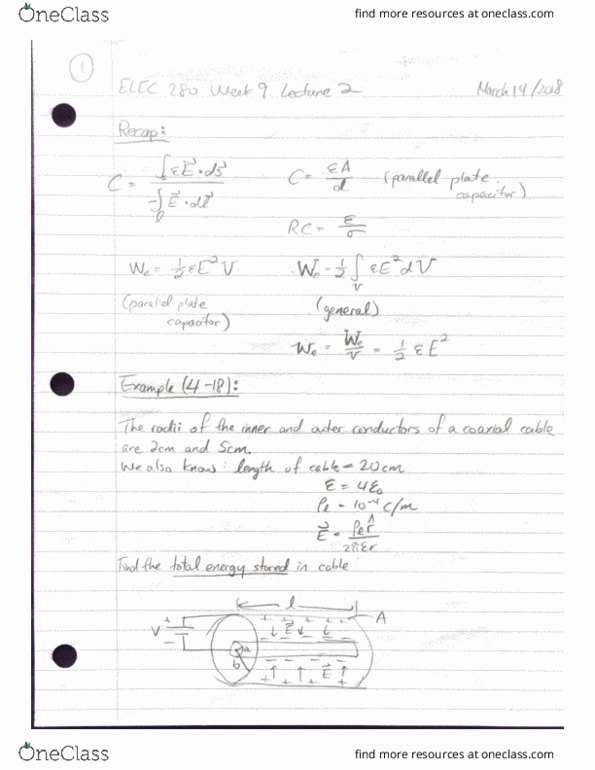 OneClass
find more resources at oneclass.com
1
ELEC 280 Week 9 Lecture 2 March 14/2018
Recap:
C = ∫ₛ εE⃗ · ds⃗ / -∫ₗ E⃗ · dl⃗ C = εA/d (parallel plate capacitor)
RC = ε/σ
We = 1/2 εE²V We = 1/2 ∫ᵥ εE² dV
(parallel plate capacitor) (general)
we = We/V = 1/2 εE²
Example (4-18):
The radii of the inner and outer conductors of a coaxial cable
are 2cm and 5cm.
We also know: length of cable = 20cm
ε = 4ε₀
ρℓ = 10⁻⁴ C/m
E⃗ = ρℓ r̂ / 2πεr
Find the total energy stored in cable
l
V + - a b E⃗ E⃗ A
OneClass
find more resources at oneclass.com